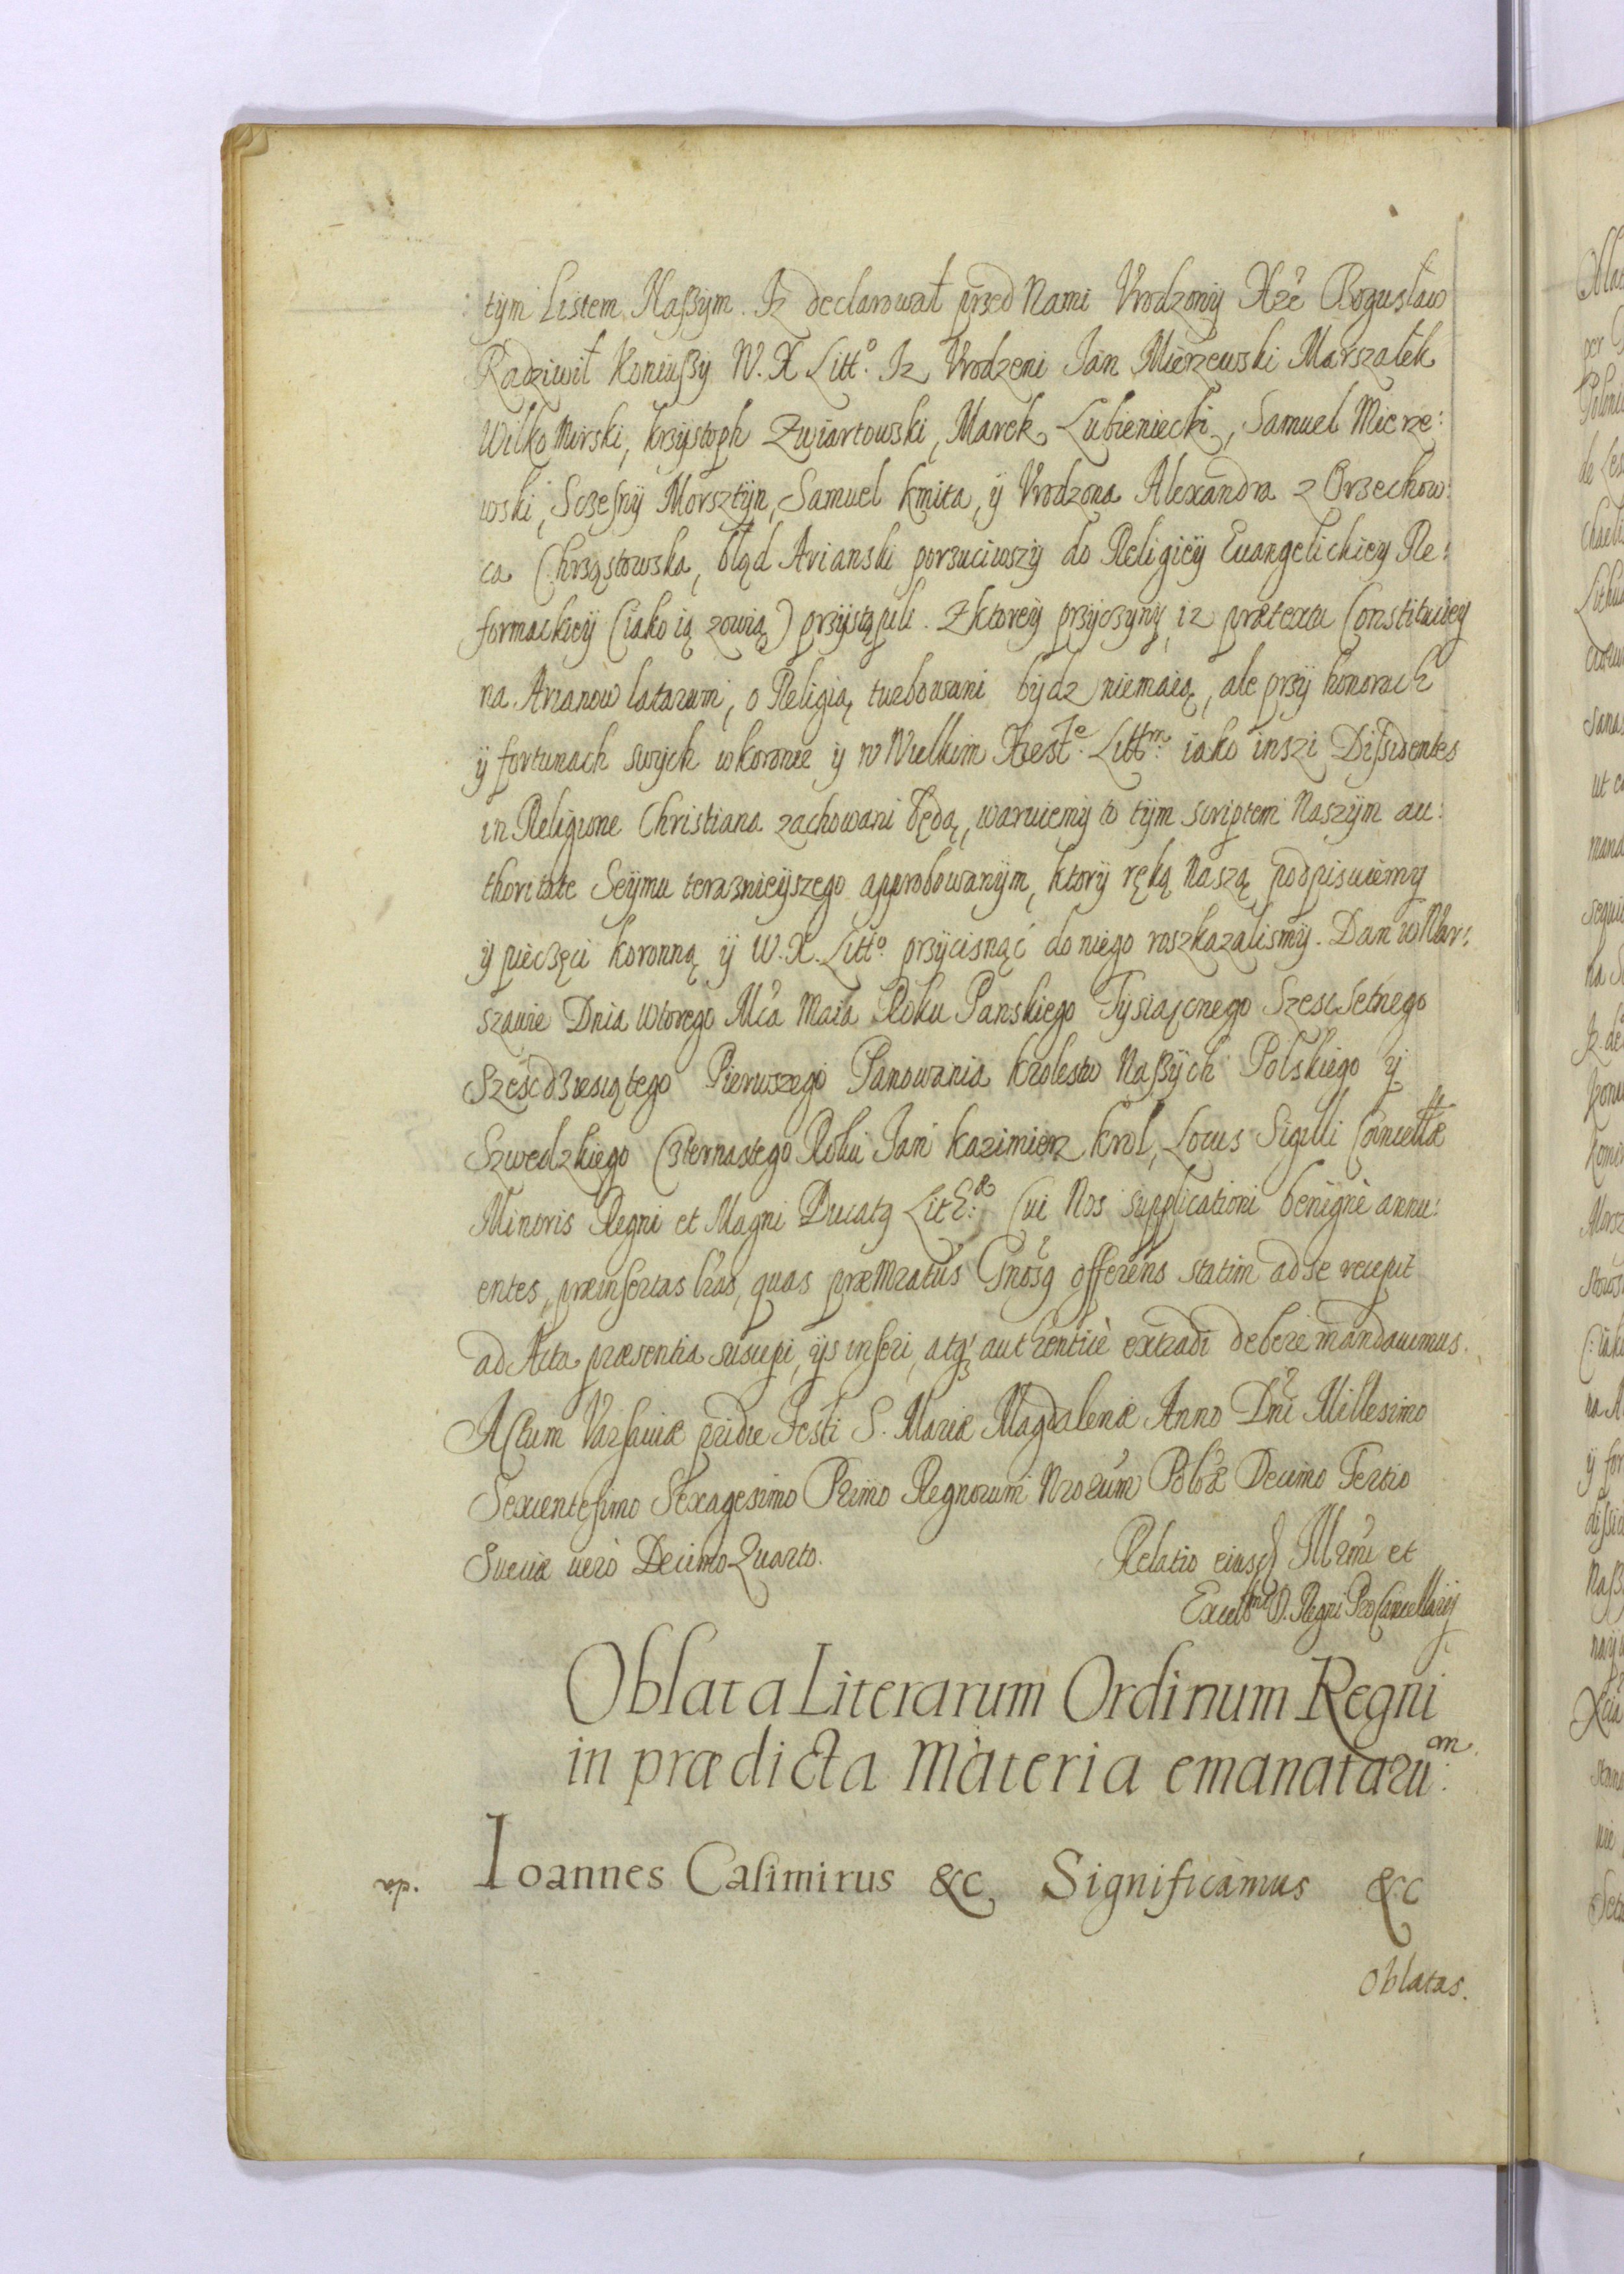 tym Listem Naßym. Jz declarowat przed Nami Vrodzony Xże Boguslaw
Radziwił Koniußy W. X Litt.º Jz Vrodzeni Jan Mierzewski Marszałek
Wilkomirski, krzystoph Zwiartowski, Marek Lubieniecki, Samuel Mierze:
wski, Sczesny Morsztyn, Samuel kmita, ÿ Vrodzona Alexandra z Orzechow:
ca Chrząstowska, błąd Arianski porzuciwszÿ do Religiey Euangelickiey Re:
formackiey (iako ią zowią) przystąpili. Z ktorey przyczyny, iz prætextu Constituciey
na Arianow latarum, o Religią turbowani bydz niemaią, ale przy honorach
ÿ fortunach swych w koronie ÿ w Wielkim Xiest.e Litt.m iako inszi Dißidentes
in Religione Christiana zachowani będą, waruiemy to tym scriptem Naszym au:
thoritate Seymu teraznieyszego approbowanym, ktory ręką Naszą podpisuiemy
ÿ pieczęci koronną ÿ W. X. Litt.º przycisnąć do niego roszkazalismy. Dan w War:
szawie Dnia wtorego Mca Maia Roku Panskiego Tysiącnego Szescsetnego
Szescdziesiątego Pierwszego Panowania krolestw Naßych Polskiego ÿ
Szwedzkiego Czternastego Roku Jan kazimierz krol, Locus Sigilli Cancellæ
Minoris Regni et Magni Ducatq Lit. Cui Nos supplicationi benigne annu:
entes, præinsertas lras, quas præmratus Gnosq offerens statim ad se recepit
ad Acta præsentia suscipi, ijs inseri, atq authentice extradi debere mandauimus.
Actum Varsauiæ pridie Festi S. Mariæ Magdalenæ Anno Dni Millesimo
Sexcentesimo Sexagesimo Primo Regnorum Nrorum Polæ Decimo Tertio
Sueciæ uero Decimo Quarto. Relatio eiusd Illrmi et
Excellmi D. Regni ProCancellarij
Oblata Literarum Ordinum Regni
in prædicta Materia emanataru.m
Ioannes Casimirus &c, Significamus &c
Oblatas.